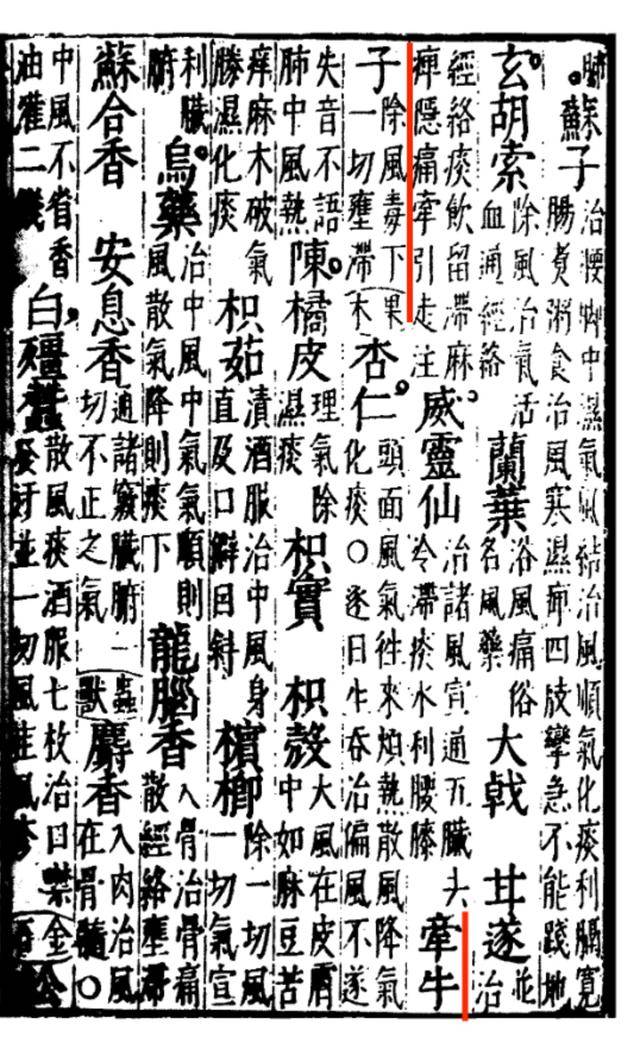 蘇子治腰脚中濕氣風結治風順氣化痰利膈寬腸煑粥食治風寒濕痹四肢攣急不能踐地
玄胡索除風治氣活血通經絡蘭葉浴風痛俗名風藥大戟甘遂並治
經絡痰飲留滯麻痺隱痛牽引走注威靈仙治諸風宣通五臟去冷滯痰水利腰膝牽牛
子除風毒下一切壅滯果木杏仁頭面風氣往來煩熱散風降氣化痰○逐日生吞治偏風不遂
失音不語肺中風熱陳橘皮理氣除濕痰枳實枳殼大風在皮膚中如麻豆苦
痒麻木破氣勝濕化痰枳茹漬酒服治中風身直及口僻目斜檳榔除一切風一切氣宣
利臟腑烏藥治中風中氣氣順則風散氣降則痰下龍腦香入骨治骨痛散經絡壅滯
蘇合香安息香通諸竅臟腑一切不正之氣蟲獸麝香入肉治風在骨髓○
中風不省香油灌二錢白殭蠶散風痰酒服七枚治口噤發汗並一切風疰風疹金石